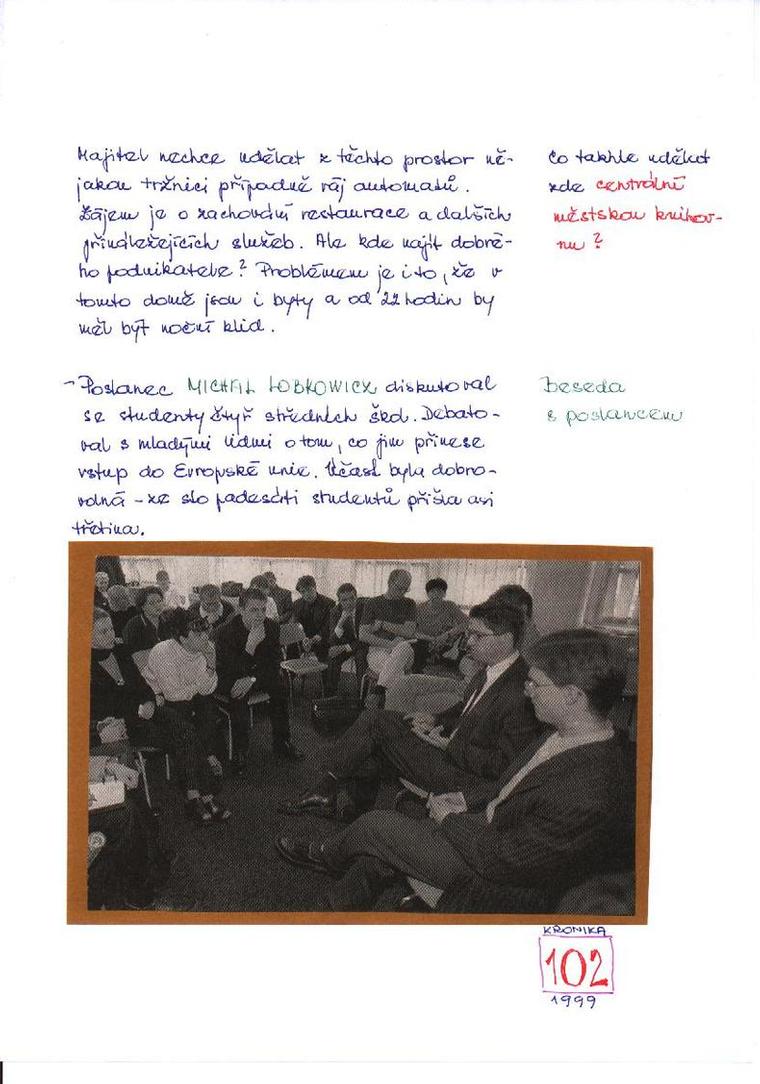 Majitel nechce udělat z těchto prostor ně-
jakou tržnici případně ráj automatů.
Zájem je o zachování restaurace a dalších
přináležejících služeb. Ale kde najít dobré-
ho podnikatele? Problémem je i to, že v
tomto domě jsou i byty a od 22 hodin by
měl být noční klid.
Co takhle udělat
zde centrální
městskou knihov-
nu?
- Poslanec MICHAL LOBKOWICZ diskutoval
se studenty čtyř středních škol. Debato-
val s mladými lidmi o tom, co jim přinese
vstup do Evropské unie. Účast byla dobro-
volná - ze sto padesáti studentů přišla asi
třetina.
Beseda
s poslancem
KRONIKA
102
1999